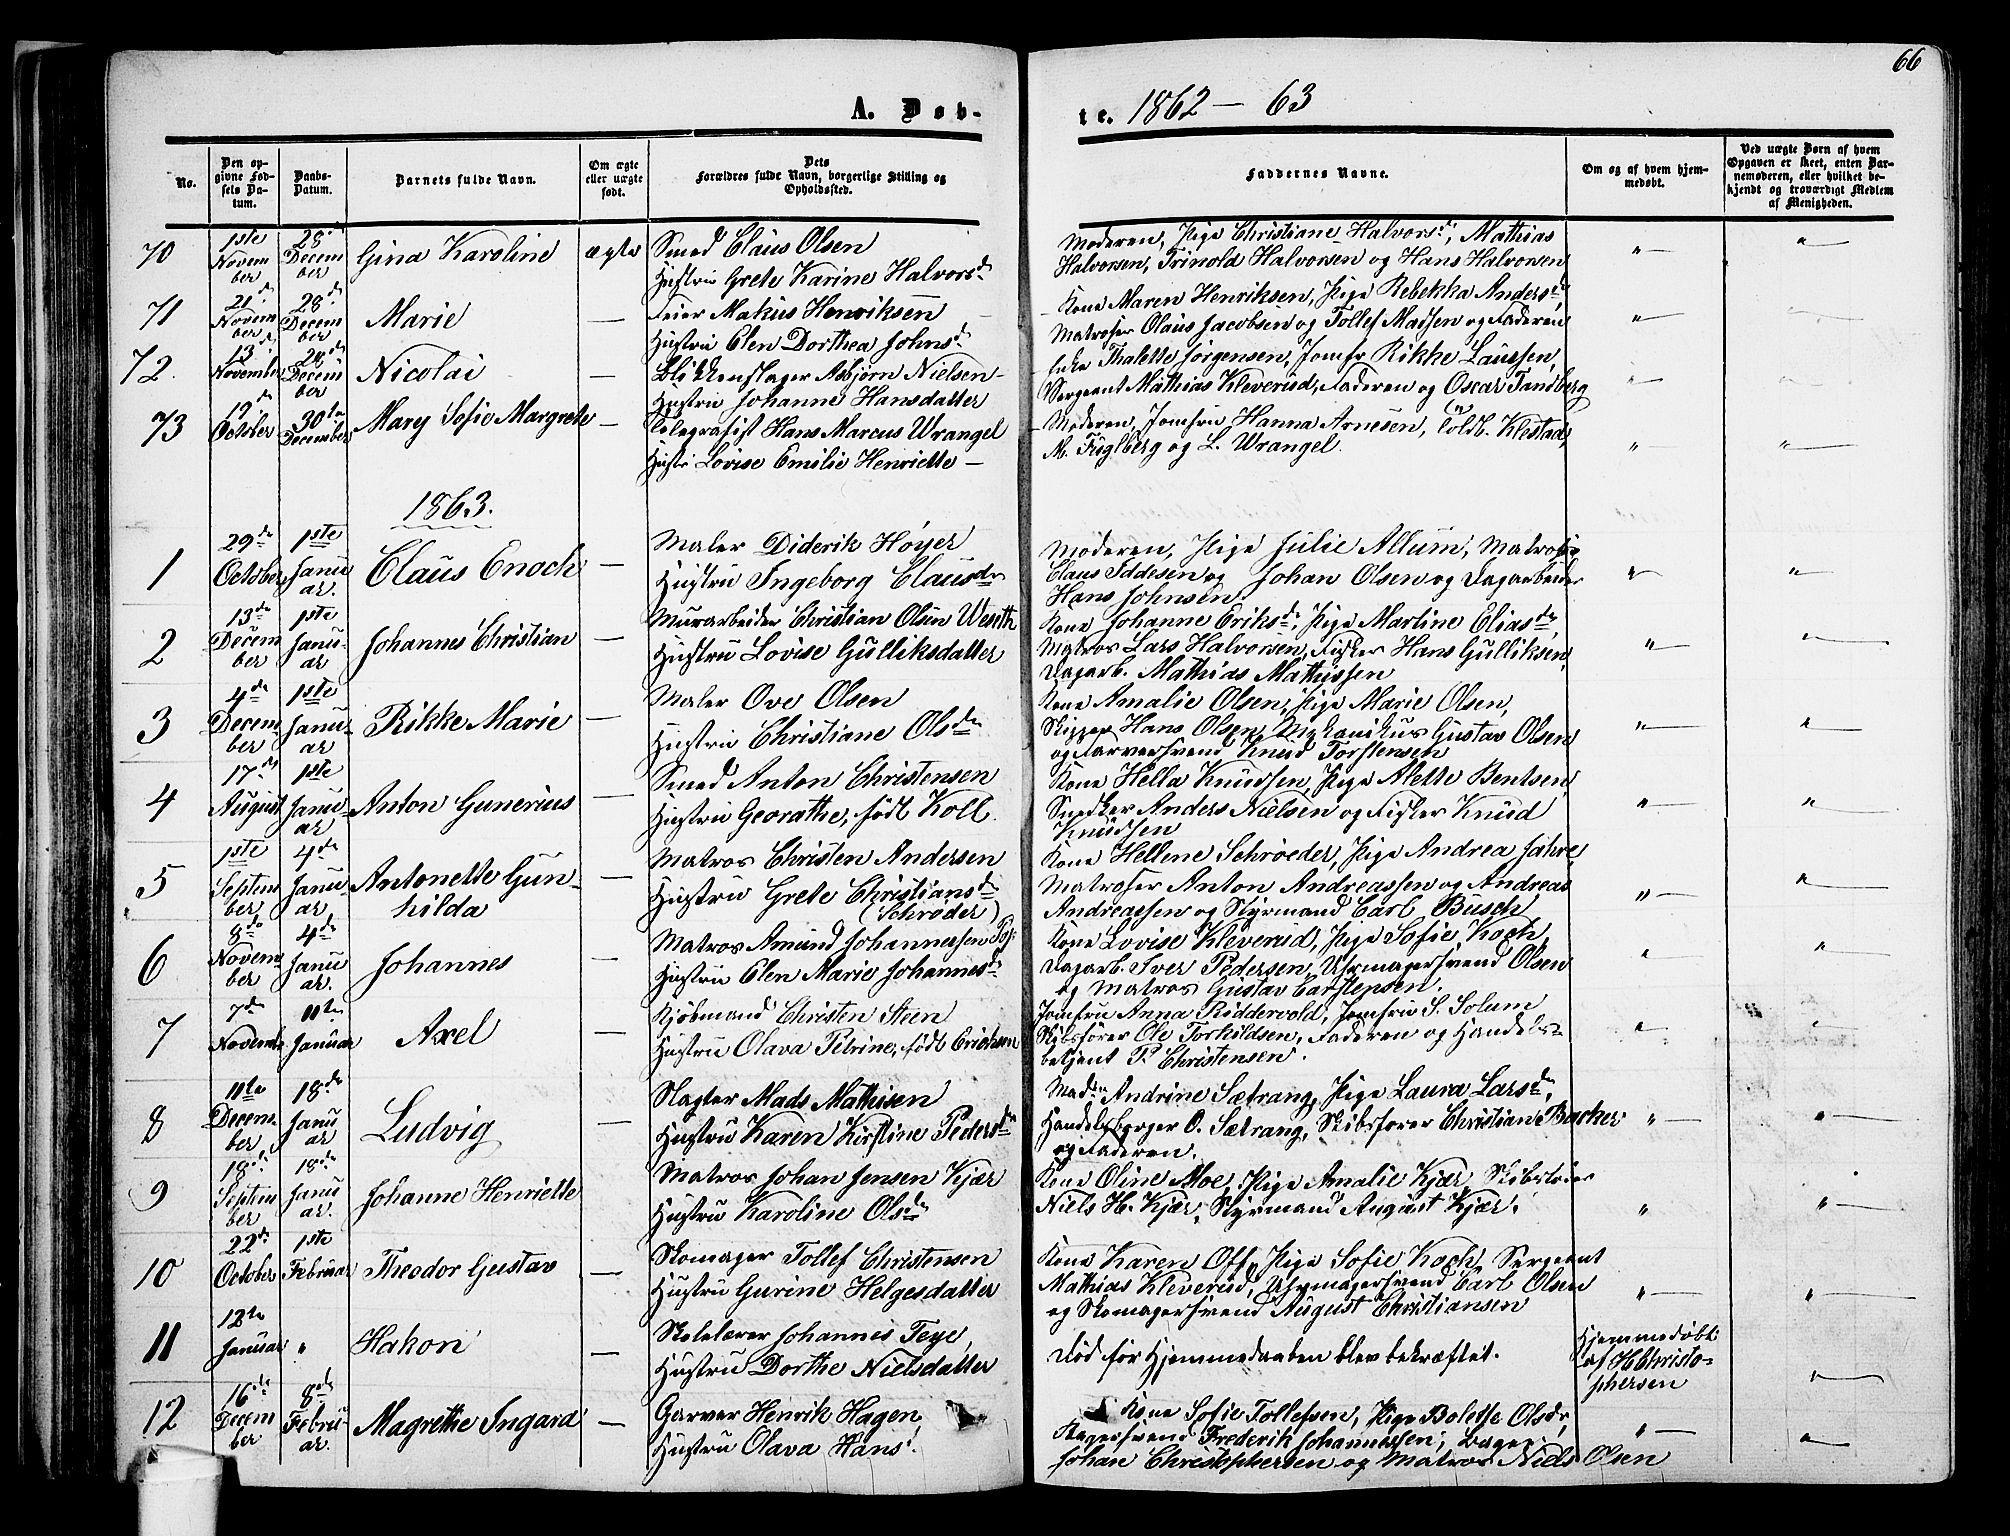 66
A. Døb-
te. 1862 - 63
No.
Den op-
givne Fød-
sels Da-
tum.
Daabs-
Datum.
Barnets fulde Navn.
Om ægte
eller uægte
født.
Dets
Forældres fulde Navn, borgerlige Stilling og
Opholdssted.
Faddernes Navne.
Om og af hvem hjem-
medøbt.
Ved uægte Børn af hvem
Opgaven er skeet, enten Bar-
nemoderen, eller hvilket be-
kjendt og troværdigt Medlem
af Menigheden.
70
1ste
Novem
ber
28de
Decem
ber
Gina Karoline
ægte
Smed Claus Olsen
Hustru Grete Karine Halvorsd.
Moderen, Pige Christiane Halvorsd., Mathias
Halvorsen, Trinold Halvorsen og Hans Halvorsen
71
21de
Novem
ber
28de
Decem
ber
Marie
—
Feier Makus Henriksen
Hustru Elen Dorthea Johnsd.
Kone Maren Henriksen, Pige Rebekka Andersd.
Matroser Claus Jacobsen og Tollef Madsen og Faderen
72.
13de
November
28de
Decem
ber
Nicolai
—
Blikkenslager Asbjørn Nielsen
Hustru Johanne Hansdatter
Enke Thalette Jørgensen, Jomfr Rikke Laussen,
Sergeant Mathias Kleverud, Faderen og Oscar Tandberg
73
19de
October
30te
December
Mary Sofie Margrete
—
Telegrafist Hans Marcus Wrangel
Hustr. Lovise Emilie Henriette —
Moderen, Jomfru Hanna Arnesen, Toldb. Klestad,
M. Fuglberg og L. Wrangel.
1863.
1
29de
October
1ste
Janu
ar.
Claus Enoch
—
Maler Diderik Høyer
Hustru Ingeborg Clausdr
Moderen, Pige Julie Allum, Matroser
Claus Iddesen og Johan Olsen og Dagarbeider
Hans Johnsen.
2
13de
Decem
ber
1ste
Janu-
ar
Johannes Christian
—
Murarbeider Christian Olsen Weseth
Hustru Lovise Gulliksdatter
Kone Johanne Eriksd., Pige Martine Eliasdr,
Matros Lars Halvorsen, Fisker Hans Gulliksen,
Dagarb. Mathias Mathissen
3
4de
Decem-
ber
1ste
Janu-
ar
Rikke Marie
—
Maler Ove Olsen
Hustru Christiane Olsdr
Kone Amalie Olsen, Pige Marie Olsen,
Skipper Hans Olsen, Mekanikus Gustav Olsen
og Farversvend Knud Torstensen
4
17de
August
1ste
Janu-
ar
Anton Gunerius
—
Smed Anton Christensen
Hustru Georathe, født Koll.
Kone Hella Knudsen, Pige Alette Bentsen,
Snedker Anders Nielsen og Fisker Knud
Knudsen
5
1ste
Septem
ber
4de
Janu-
ar.
Antonette Gun-
hilda
—
Matros Christen Andersen
Hustru Grete Christiansd.
(Schrøder)
Kone Hellene Schrøeder, Pige Andrea Jahre,
Matroser Anton Andreassen og Andreas
Andreassen og Styrmand Carl Busch
6
8de
Novem-
ber
4de
Janu
ar.
Johannes
—
Matros Amund Johannessen
Hustru Elen Marie Johannesd.
Kone Lovise Kleverud, Pige Sofie Koch,
Dagarb. Iver Pedersen, Uhrmagersvend Olsen
og Matros Gustav Carstensen.
7
7de
Novembr
11te
Januar
Axel
—
Kjøbmand Christen Steen
Hustru Olava Petrine, født Erichsen
Jomfru Anna Riddervold, Jomfru S. Solum
Skibsfører Ole Torkildsen, Faderen og Handels-
betjent P. Christensen.
8
11te
Decem-
ber
18de
Janu
ar
Ludvig
—
Slagter Mads Mathisen
Hustru Karen Kirstine Pedersdr
Mad.n Andrine Sætrang, Pige Laura Larsdr,
Handelsborger O. Sætrang, Skibsfører Christian Backer
og Faderen.
9
18de
Septem
ber
18de
Janu
ar.
Johanne Henriette
Matros Johan Jensen Kjær
Hustru Karoline Olsdr
Kone Oline Moe, Pige Amalie Kjær, Skibsfører
Niels H. Kjær, Styrmand August Kjær.
10
22de
October
1ste
Februar
Theodor Gustav
—
Skomager Tollef Christensen
Hustru Gurine Helgesdatter
Kone Karen Off, Pige Sofie Koch, Sergeant
Mathias Kleverud, Uhrmagersvend Carl Olsen
og Skomagersvend August Christiansen
11
12te
Januar
"
Hakon
—
Skolelærer Johannes Teye,
Hustru Dorthe Nielsdatter
Død før Hjemmedaaben blev bekræftet.
Hjemmedøbt
af H Christo-
phersen
12
16de
Decem
ber
8de
Febru-
ar.
Magrethe Ingard
—
Garver Henrik Hagen
Hustru Olava Hans.
Kone Sofie Tollefsen, Pige Bolette Olsdr,
Bagersvend Frederik Johannessen, Bager
Johan Christophersen og Matros Niels Olsen